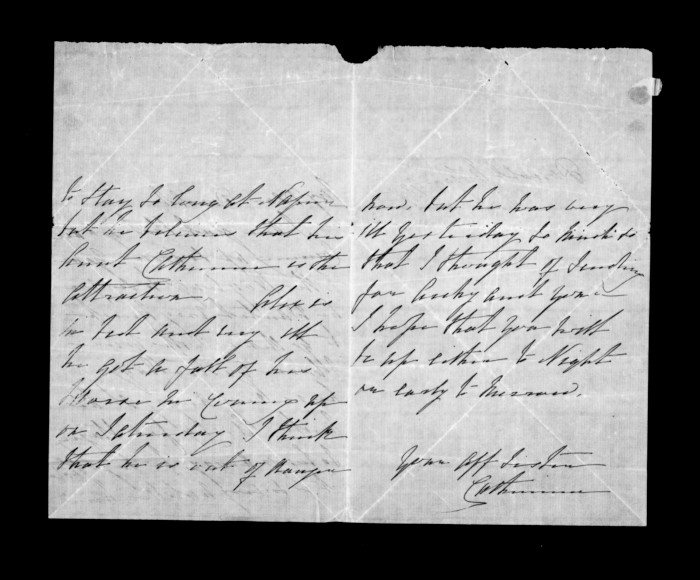 to stay so long at Napier
but he believes that his
Aunt Catherine is the
attraction. Alex is
in bed and very ill
he got a fall off his
Horse in coming up
on Saturday I think
that he is out of danger
now. but he was very
ill yesterday so much so
that I thought of sending
for Archy and you
I hope that you will
be up either to Night
or early to morrow.
your aff Sister
Catherine